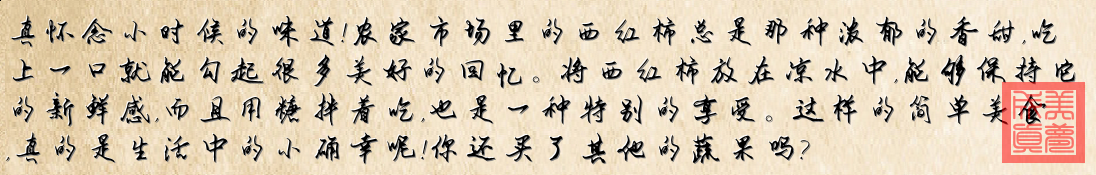 真怀念小时候的味道!农家市场里的西红柿总是那种浓郁的香甜,吃
上一口就能勾起很多美好的回忆。将西红柿放在凉水中,能够保持它
的新鲜感,而且用糖拌着吃,也是一种特别的享受。这样的简单美食
,真的是生活中的小确幸呢!你还买了其他的蔬果吗?
美梦成真